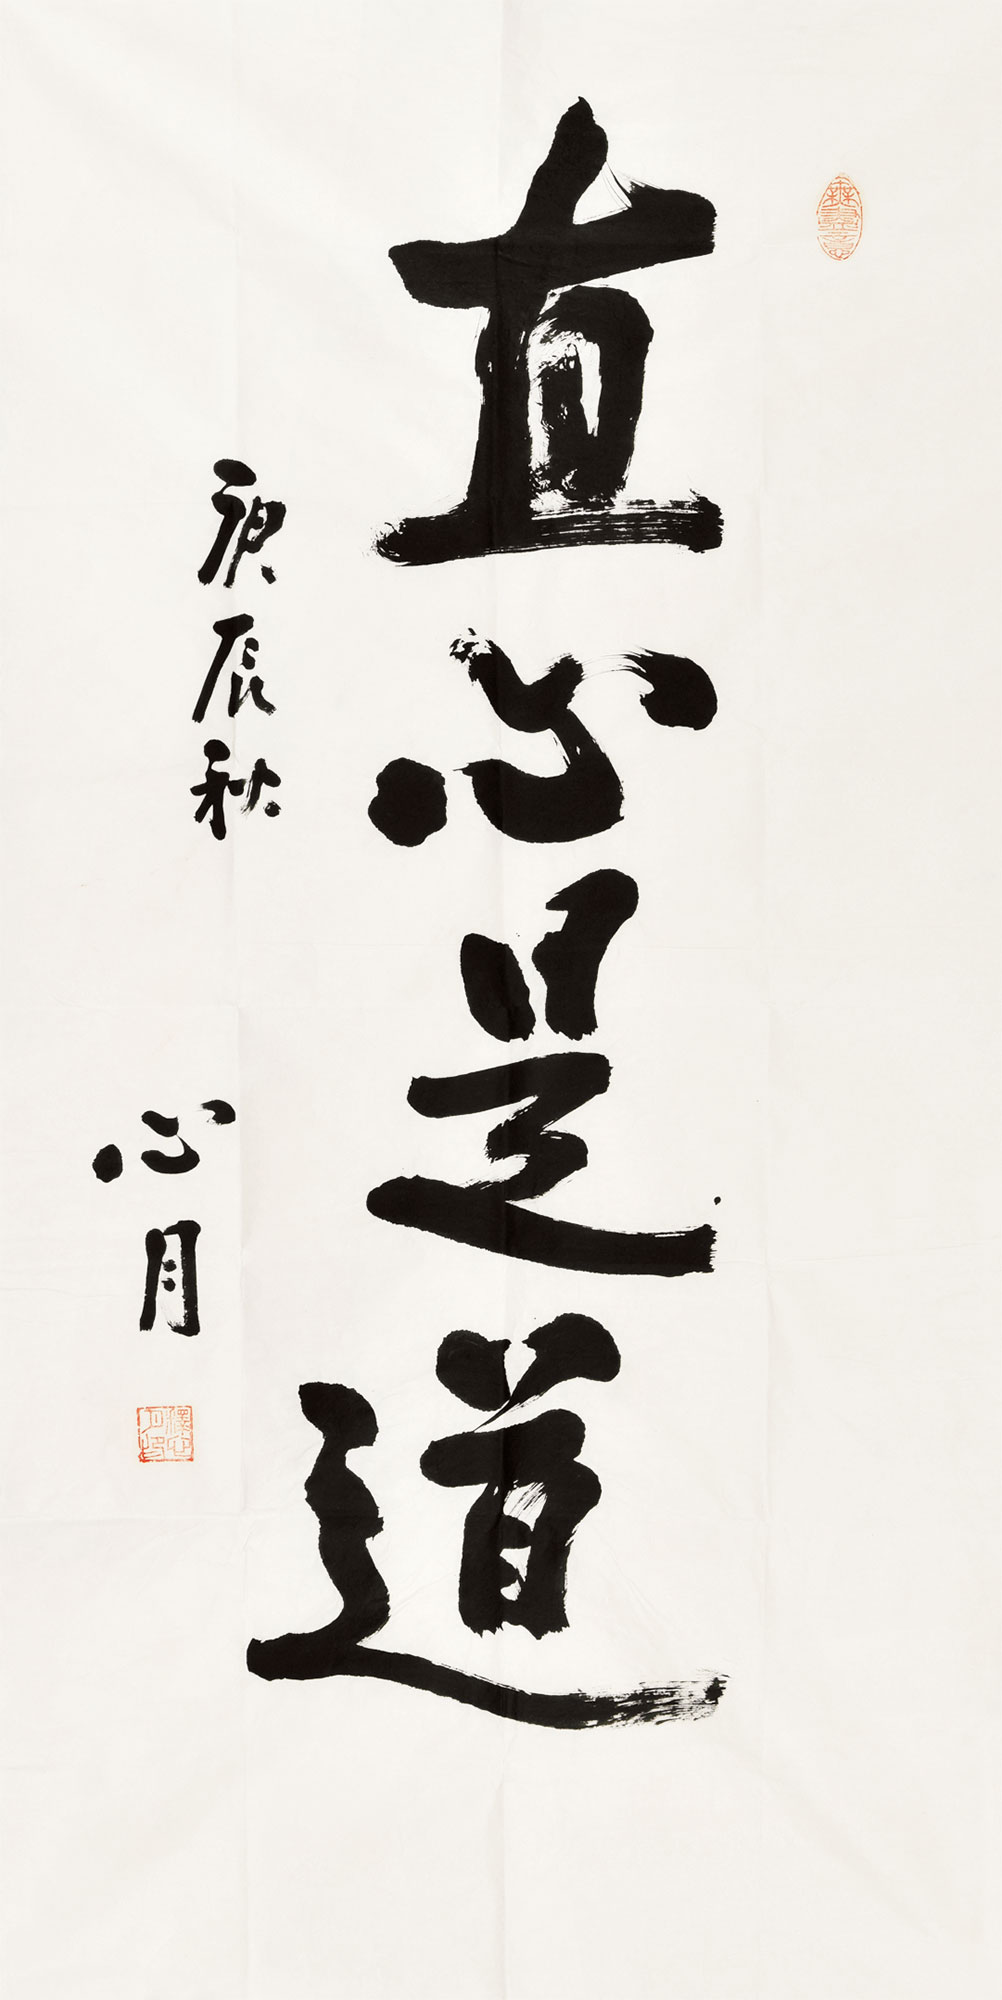 直心是道
庚辰秋
心月